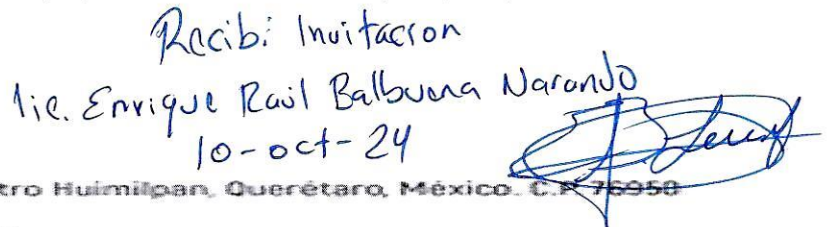 Recibi Invitacion
lic. Enrique Raúl Balbuena Narando
10-oct-24
tro Huimilpan, Querétaro, México. C.P. 76950